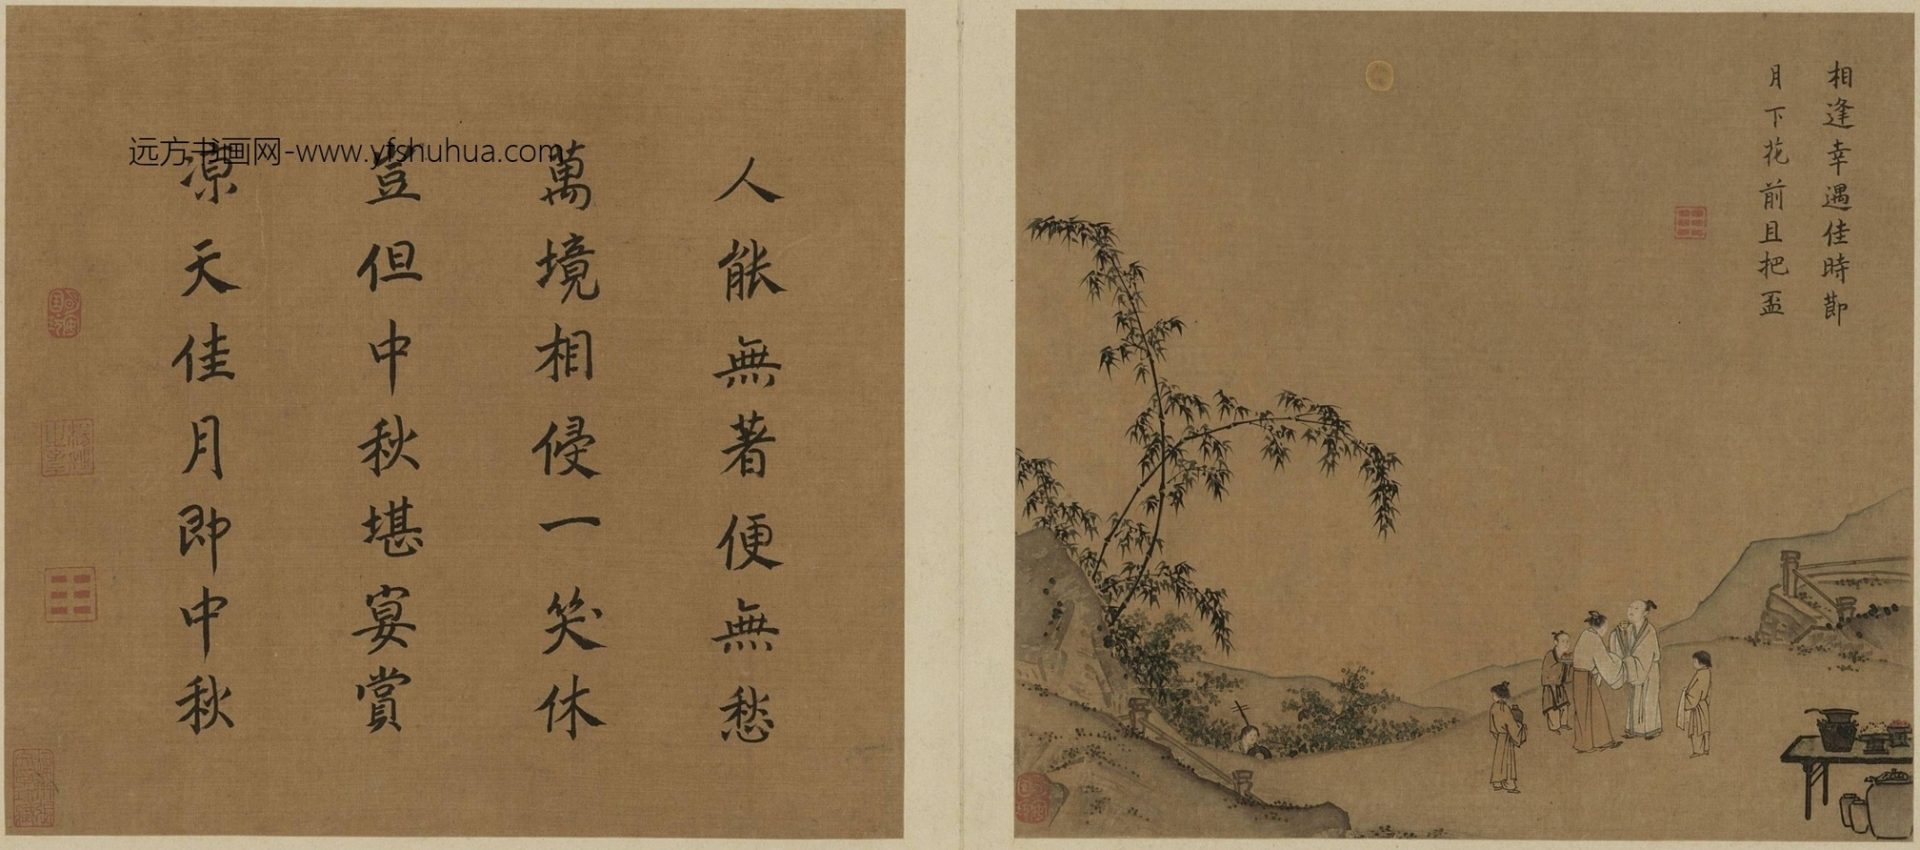 相逢幸遇佳時節
月下花前且把盃
人能無著便無愁
萬境相侵一笑休
豈但中秋堪宴賞
凉天佳月即中秋
远方书画网-www.yfshuhua.com